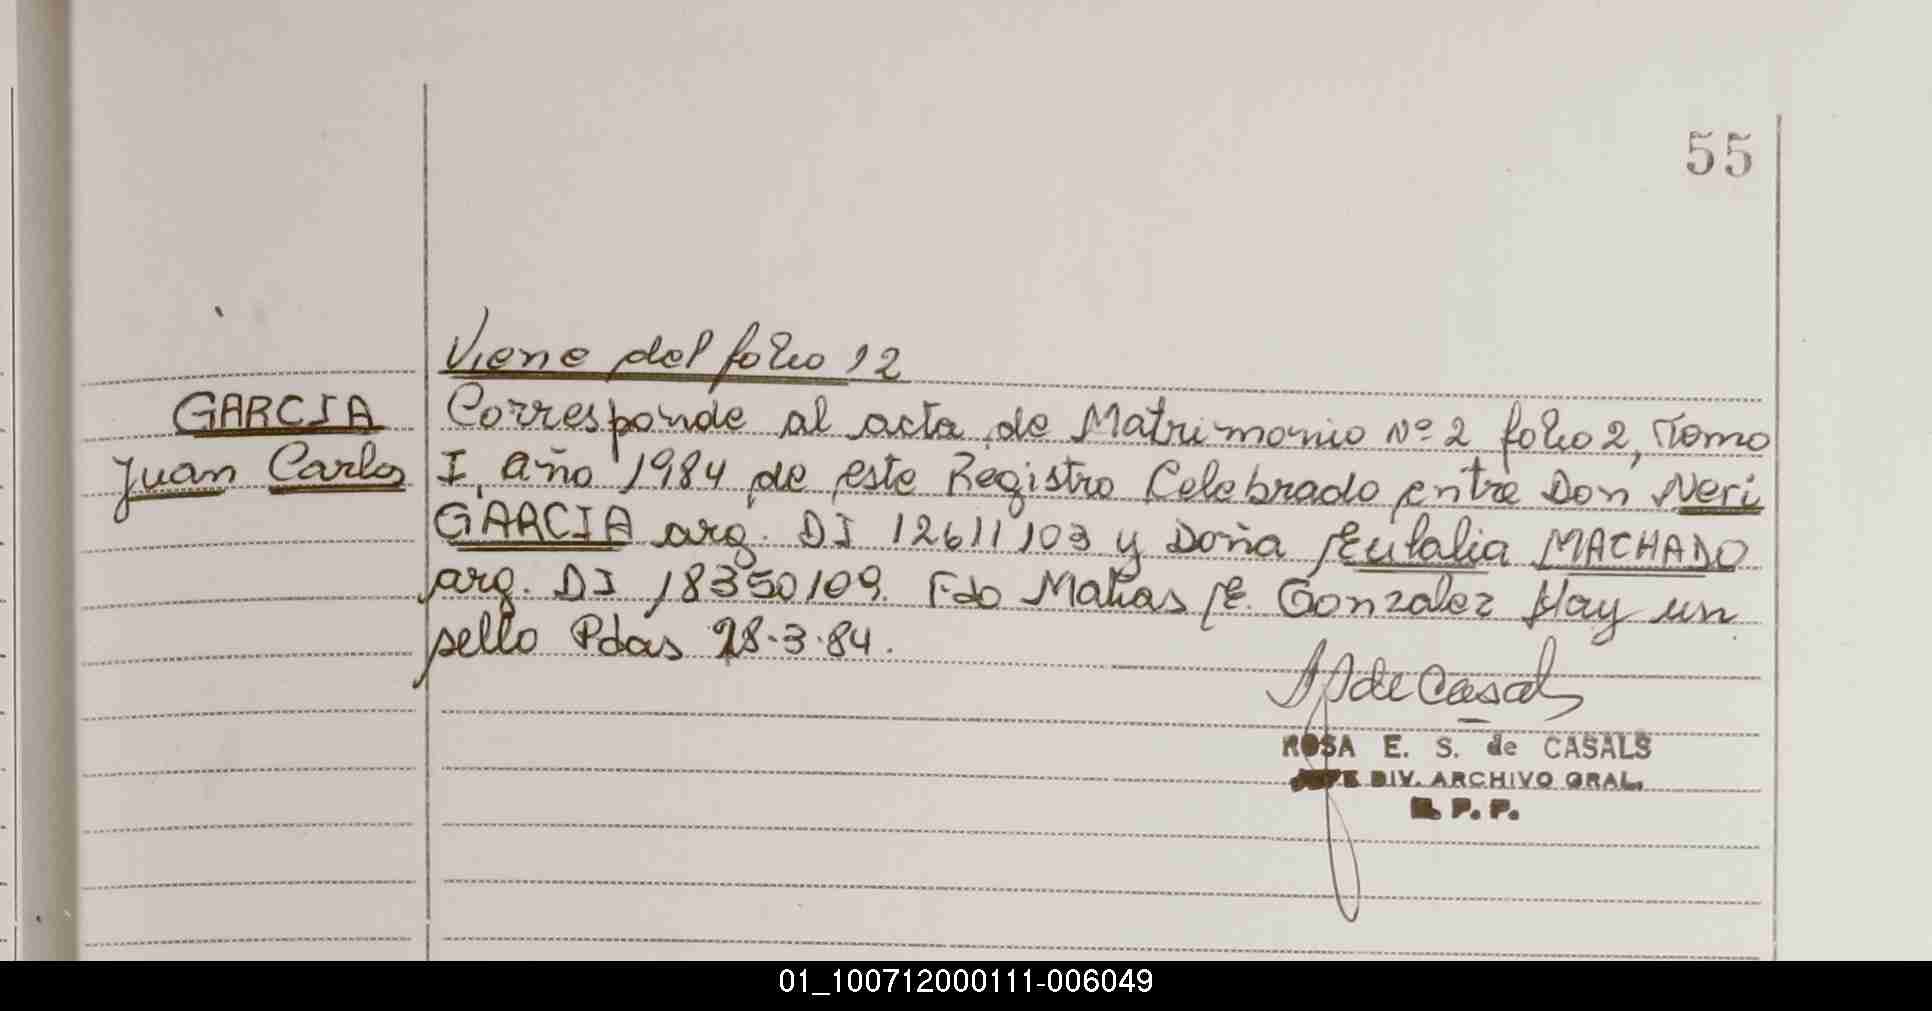 55
Viene del folio 12
GARCIA
Juan Carlos
Corresponde al acta de Matrimonio Nº 2 folio 2, Tomo
I, año 1984 de este Registro Celebrado entre Don Neri
GARCIA arg. DI 12611103 y Doña Eulalia MACHADO
arg. DI 18350109. Fdo Matias E. Gonzalez Hay un
sello Pdas 28.3.84.
de Casals
ROSA E. S. de CASALS
JEFE DIV. ARCHIVO GRAL.
P. P.
01_100712000111-006049